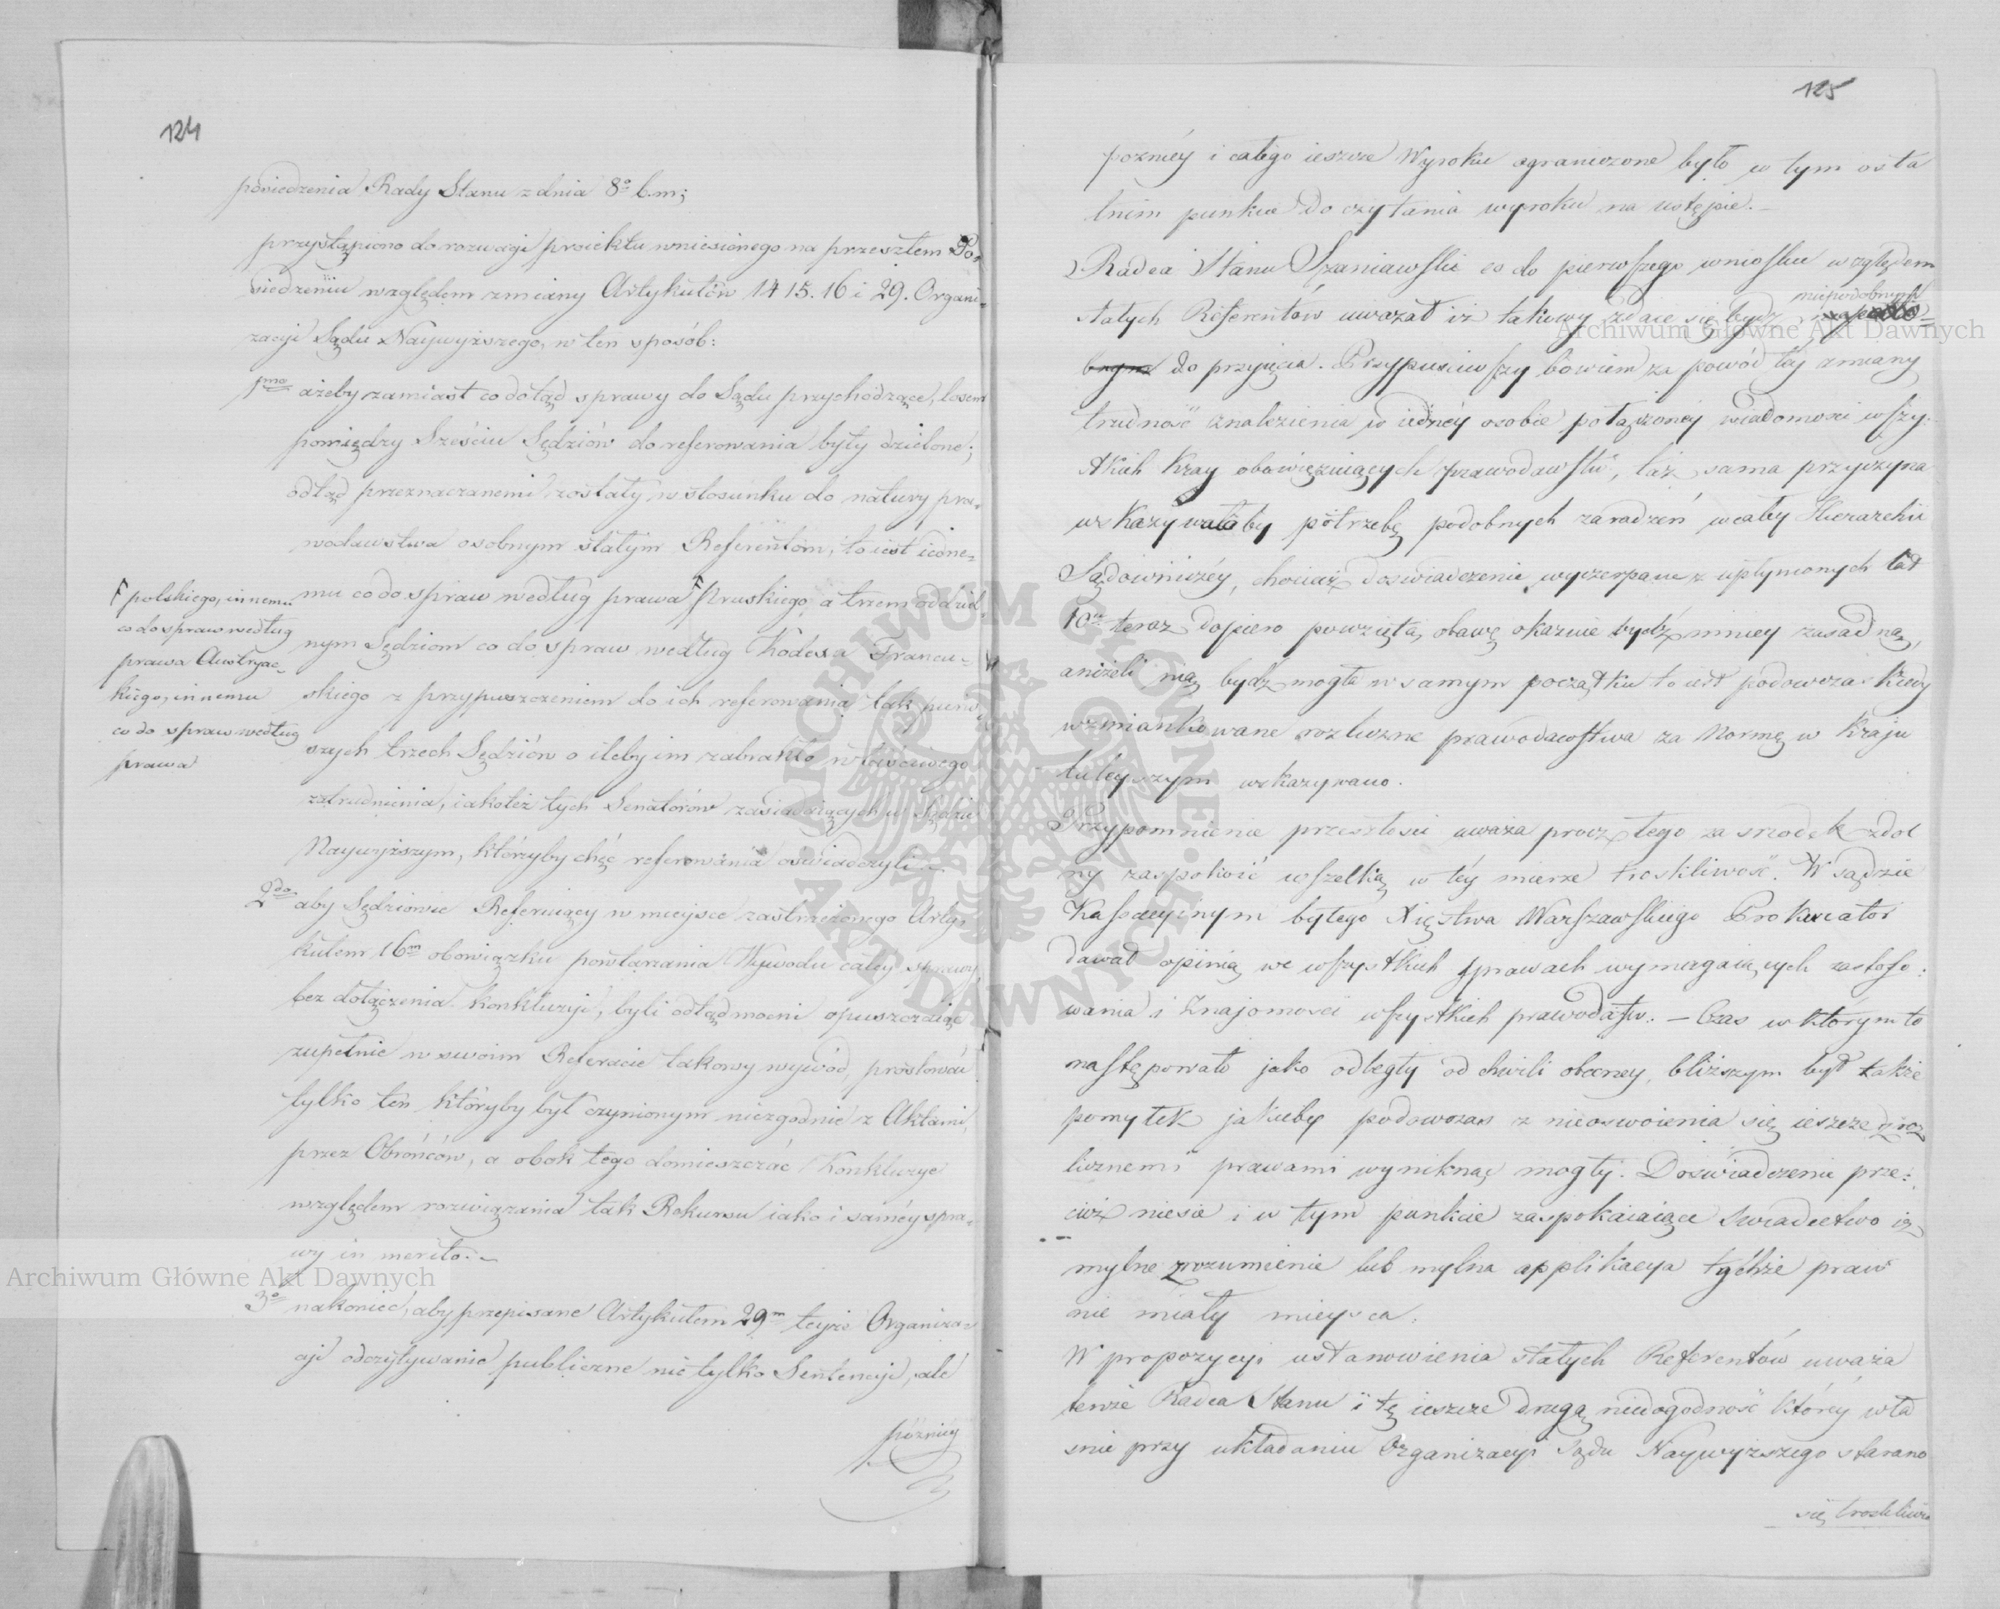 124
posiedzenia Rady Stanu z dnia 8º b.m;
przystąpiono do rozwagi proiektu wniesionego na przeszłem Po-
siedzeniu względem zmiany Artykułów 14 15. 16 i 29. Organi-
zacyi Sądu Naywyższego, w ten sposób:
1mo ażeby zamiast co dotąd sprawy do Sądu przychodzące, losem
pomiędzy Sześciu Sędziów do referowania były dzielone;
odtąd przeznaczanemi zostały w stosunku do natury pra-
wodawstwa osobnym stałym Referentom, to iest iedne-
mu co do spraw według prawa F Pruskiego, a trzem oddziel-
nym Sędziom co do spraw według Kodexa Francu-
skiego z przypuszczeniem do ich referowania tak pierw-
szych trzech Sędziów o ileby im zabrakło właściwego
zatrudnienia, iako też tych Senatorów zasiadaiących w Sądzie
Naywyższym, którzyby chęć referowania oświadczyli.
F polskiego, innemu
co do spraw według
prawa Austryac-
kiego, innemu
co do spraw według
prawa
2do aby Sędziowie Referuiący w mieysce zastrzeżonego Arty-
kułem 16m obowiązku powtarzania Wywodu całey sprawy
bez dołączenia Konkluzyi, byli odtąd mocni opuszczaiąc
zupełnie w swoim Referacie takowy wywód, prostować
tylko ten któryby był czynionym niezgodnie z Aktami,
przez Obrońców, a obok tego domieszczać Konkluzye
względem rozwiązania tak Rekursu iako i saméy spra-
wy in merito.
3º nakoniec, aby przepisane Artykułem 29m teyże Organiza-
cyi odczytywanie publiczne nie tylko Sentencyi, ale
późniéy
125
poźniéy i całego ieszcze Wyroku ograniczone było w tym osta
tnim punkcie do czytania wyroku na ustępie.
Radca Stanu Szaniawski co do pierwszego wniosku względem
stałych Referentów uważał iż takowy zdaie się bydź niepodobnym
do przyięcia. Przypuściwszy bowiem za powód téj zmiany
trudność znalezienia w iednéy osobie połączonéy wiadomości wszy-
stkich Kray obowięzuiących prawodawstw, taż sama przyczyna
wskazywałaby potrzebę podobnych zaradzeń w całey Hierarchii
Sądowniczéy, chociaż doswiadczenie wyczerpane z upłynionych lat
10u teraz dopiero powziętą obawę okazuie bydź mniey zasadną,
aniżeli nią bydź mogła w samym początku to iest podowczas kiedy
wzmiankowane rozliczne prawodawstwa za Normę w Kraju
tuteyszym wskazywano.
Przypomnienie przeszłości uważa prócz tego za srzodek zdol
ny zaspokoić wszelką w téy mierze troskliwość. W Sądzie
Kassacyinym byłego Xięstwa Warszawskiego Prokurator
dawał opinią we wszystkich sprawach wymagaiących zastoso-
wania i znajomości wszystkich prawodastw. — Czas w którym to
następowało jako odległy od chwili obecney, bliższym był także
pomyłek jakieby podowczas z nieoswoienia się ieszcze z roz
licznemi prawami wyniknąć mogły. Doświadczenie prze-
cież niesie i w tym punkcie zaspokaiaiące swiadectwo iż
mylne zrozumienie lub mylna applikacya tychże praw
nie miały mieysca.
W propozycyi ustanowienia stałych Referentów uważa
tenże Radca Stanu i tę ieszcze drugą niedogodność któréy wła
snie przy układaniu Organizacyi Sądu Naywyższego starano
się troskliwie
Archiwum Główne Akt Dawnych
Archiwum Główne Akt Dawnych
ARCHIWUM GŁÓWNE AKT DAWNYCH